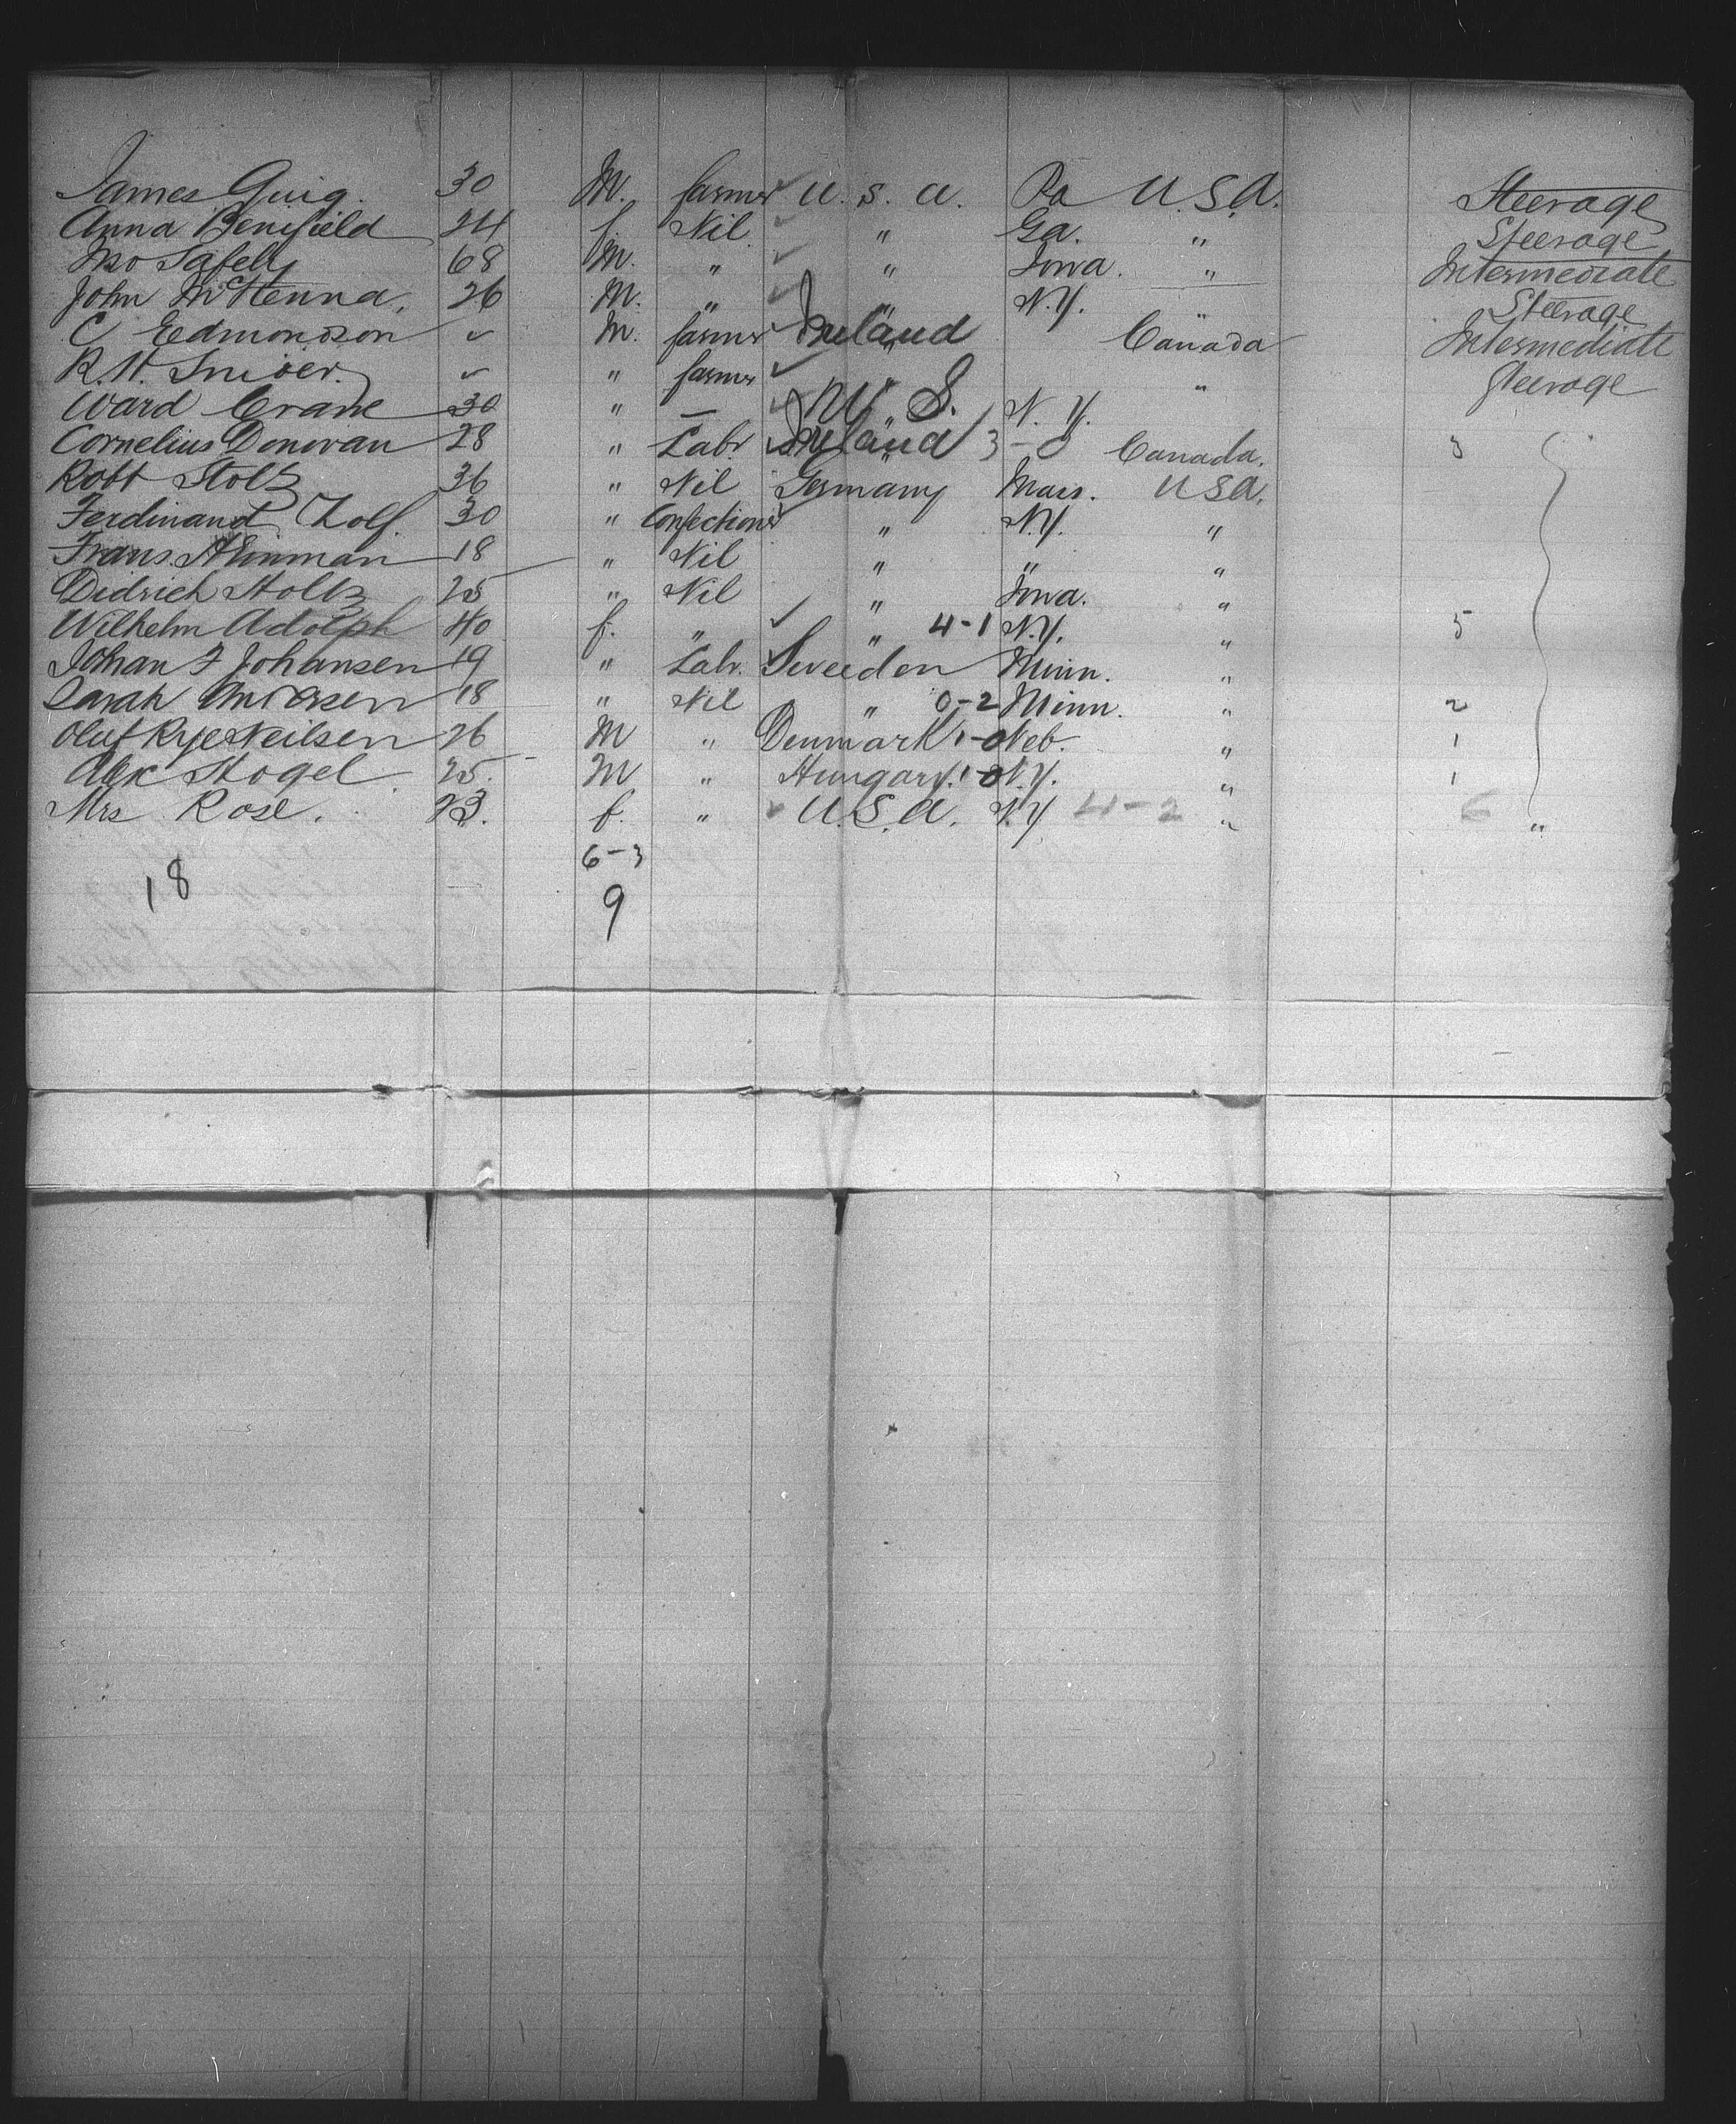 James Quig. 30 M. farmer U. S. A. Pa U.S.A. Steerage
Anna Benifield 24 f. Nil " Ga. " Steerage
Jno Safely 68 M. " " Iowa. " Intermediate
John McKenna. 26 M. " " N.Y. " Steerage
C Eedmondson M. farmer Ireland Canada Intermediate
R.H. " farmer " " Steerage
Ward Crane 30 " — U. S. N.Y.
Cornelius Donovan 28 " Labr Ireland 3-0 Canada. 3
Robt Stolz 36 " Nil Germany Mass. USA.
Ferdinand Zolf. 30 " Confectioner " N.Y. "
Frans. 18 " Nil " " "
Didrich Stoltz 25 " Nil " Iowa. "
Wilhelm Adolph 40 f. " " 4-1 N.Y. " 5
Johan F Johansen 19 " Labr. Sweeden Minn. "
Sarah Andersen 18 " Nil " 0-2 Minn. " 2
Oluf Rye Neilsen 26 M " Denmark 1-0 Neb. " 1
Alex Stogel 25. M " Hungary. 1-0 N.Y. " 1
Mrs Rose. 23. f. " U.S.A. N.Y 4-2 " 6 "
6-3
18 9